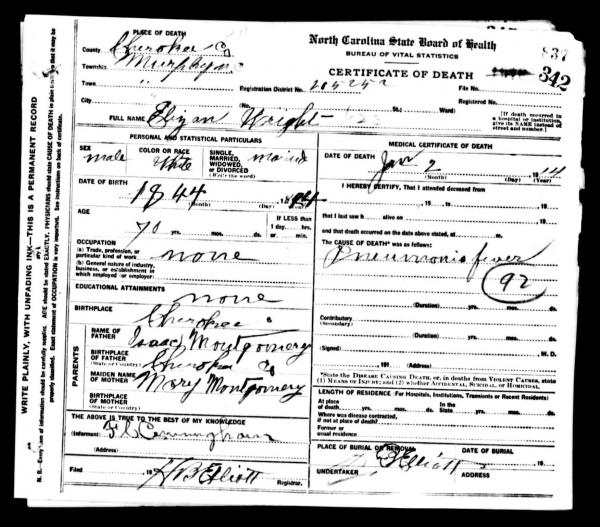 North Carolina State Board of Health
BUREAU OF VITAL STATISTICS
CERTIFICATE OF DEATH
837
342
PLACE OF DEATH
County Cherokee Co
Township Murphy
Town "
City
Registration District No.
File No.
Registered No.
(No. St.; Ward)
[If death occurred in a hospital or institution, give its NAME instead of street and number.]
FULL NAME Wright
PERSONAL AND STATISTICAL PARTICULARS
SEX male
COLOR OR RACE White
SINGLE, MARRIED, WIDOWED, OR DIVORCED
(Write the word)
DATE OF BIRTH 1844
(Month) (Day) (Year)
AGE
70 yrs. mos. ds.
If LESS than
1 day, hrs.
or min.
OCCUPATION
(a) Trade, profession, or particular kind of work none
(b) General nature of industry, business, or establishment in which employed or (employer)
EDUCATIONAL ATTAINMENTS
none
BIRTHPLACE
(State or Country) Cherokee
PARENTS
NAME OF FATHER Isaac Montgomery
BIRTHPLACE OF FATHER Cherokee Co
(State or Country)
MAIDEN NAME OF MOTHER Mary Montgomery
BIRTHPLACE OF MOTHER
(State or Country)
THE ABOVE IS TRUE TO THE BEST OF MY KNOWLEDGE
(Informant) Cunningham
(Address)
Filed 19 H B Elliott
Registrar.
MEDICAL CERTIFICATE OF DEATH
DATE OF DEATH Jan 2 1914
(Month) (Day) (Year)
I HEREBY CERTIFY, That I attended deceased from
, 19 to , 19
that I last saw h alive on , 19
and that death occurred on the date above stated, at m.
The CAUSE OF DEATH* was as follows:
Pneumonia fever
92
(Duration) yrs. mos. ds.
Contributory
(Secondary)
(Duration) yrs. mos. ds.
(Signed) M. D.
, 191 (Address)
*State the DISEASE CAUSING DEATH, or, in deaths from VIOLENT CAUSES, state (1) MEANS OF INJURY; and (2) whether ACCIDENTAL, SUICIDAL, or HOMICIDAL.
LENGTH OF RESIDENCE (For Hospitals, Institutions, Transients or Recent Residents)
At place of death yrs. mos. ds. In the State yrs. mos. ds.
Where was disease contracted, if not at place of death?
Former or usual residence
PLACE OF BURIAL OR REMOVAL
DATE OF BURIAL
, 19
UNDERTAKER Elliott
ADDRESS
WRITE PLAINLY, WITH UNFADING INK—THIS IS A PERMANENT RECORD
N. B.—Every item of information should be carefully supplied. AGE should be stated EXACTLY. PHYSICIANS should state CAUSE OF DEATH in plain terms so that it may be properly classified. Exact statement of OCCUPATION is very important. See instructions on back of certificate.